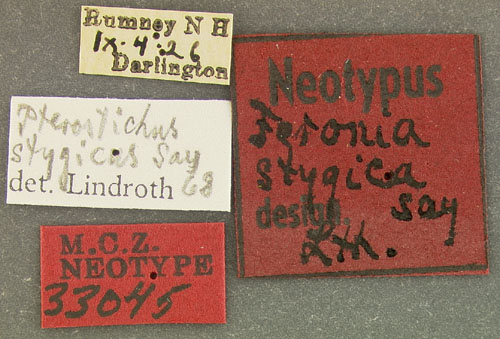 Rumney N H
IX·4·26
Darlington
Pterostichus
stygicus Say
det. Lindroth 68
M.C.Z.
NEOTYPE
33045
Neotypus
Feronia
stygica
Say
design.
Lth.